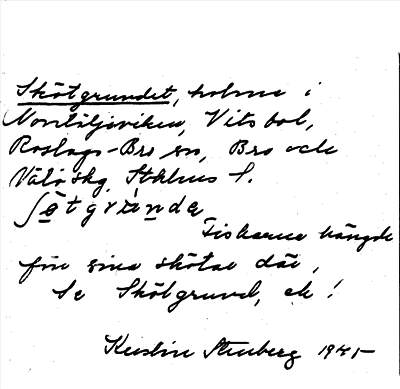 Skötgrundet, holme i
Norrtäljeviken, Vitsbol,
Roslags-Bro sn, Bro och
Vätö skg, Sthlms l.
ʃø̀tgrúndə
Fiskarna hängde
för sina skötar där,
Se Skötgrund, ek!
Kerstin Stenberg 1945